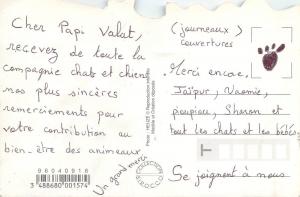 Cher Papi Valat,
recevez de toute la
compagnie chats et chiens
nos plus sincères
remerciements pour
votre contribution au
bien-être des animaux.
Un grand merci
96040916
3 488680 001574
COLLECTION
(journeaux)
couvertures
Merci encore.
Jaïpur, Naomie,
poupiou, Sharon et
tout les chats et les bébés
Se joignent à nous